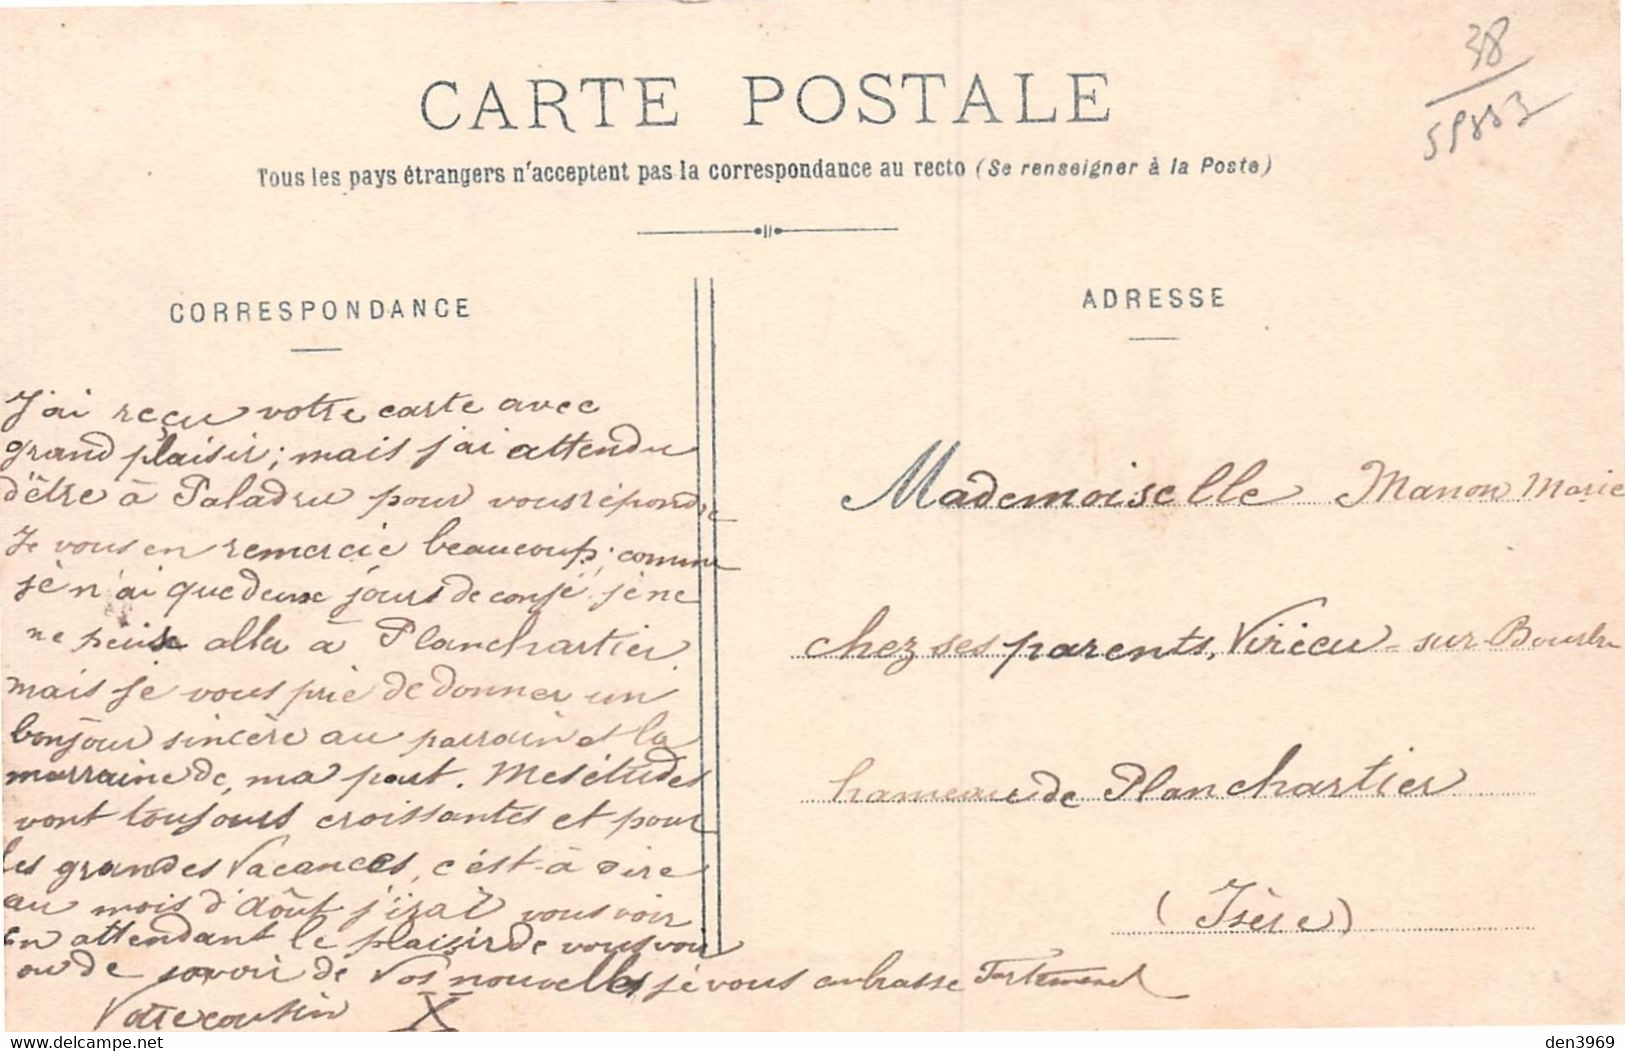 38
59883
CARTE POSTALE
Tous les pays étrangers n'acceptent pas la correspondance au recto (Se renseigner à la Poste)
CORRESPONDANCE
J'ai reçu votre carte avec
grand plaisir; mais j'ai attendu
d'être à Paladru pour vous répondre
Je vous en remercie beaucoup; comme
je n'ai que deux jours de conjé je ne
ne peux aller à Planchartier
mais je vous prie de donner un
bonjour sincère au parrain et la
marraine de, ma part. Mes études
vont toujours croissantes et pour
les grandes Vacances, c'ést-à dire
au mois d'Août j'irai vous voir
En attendant le plaisir de vous voir
ou de savoir de Vos nouvelles je vous embrasse Fortement
Votre cousin X
ADRESSE
Mademoiselle Manon Marie
chez ses parents, Virieu-sur-Bourbre
hameau de Planchartier
(Isère)
den3969